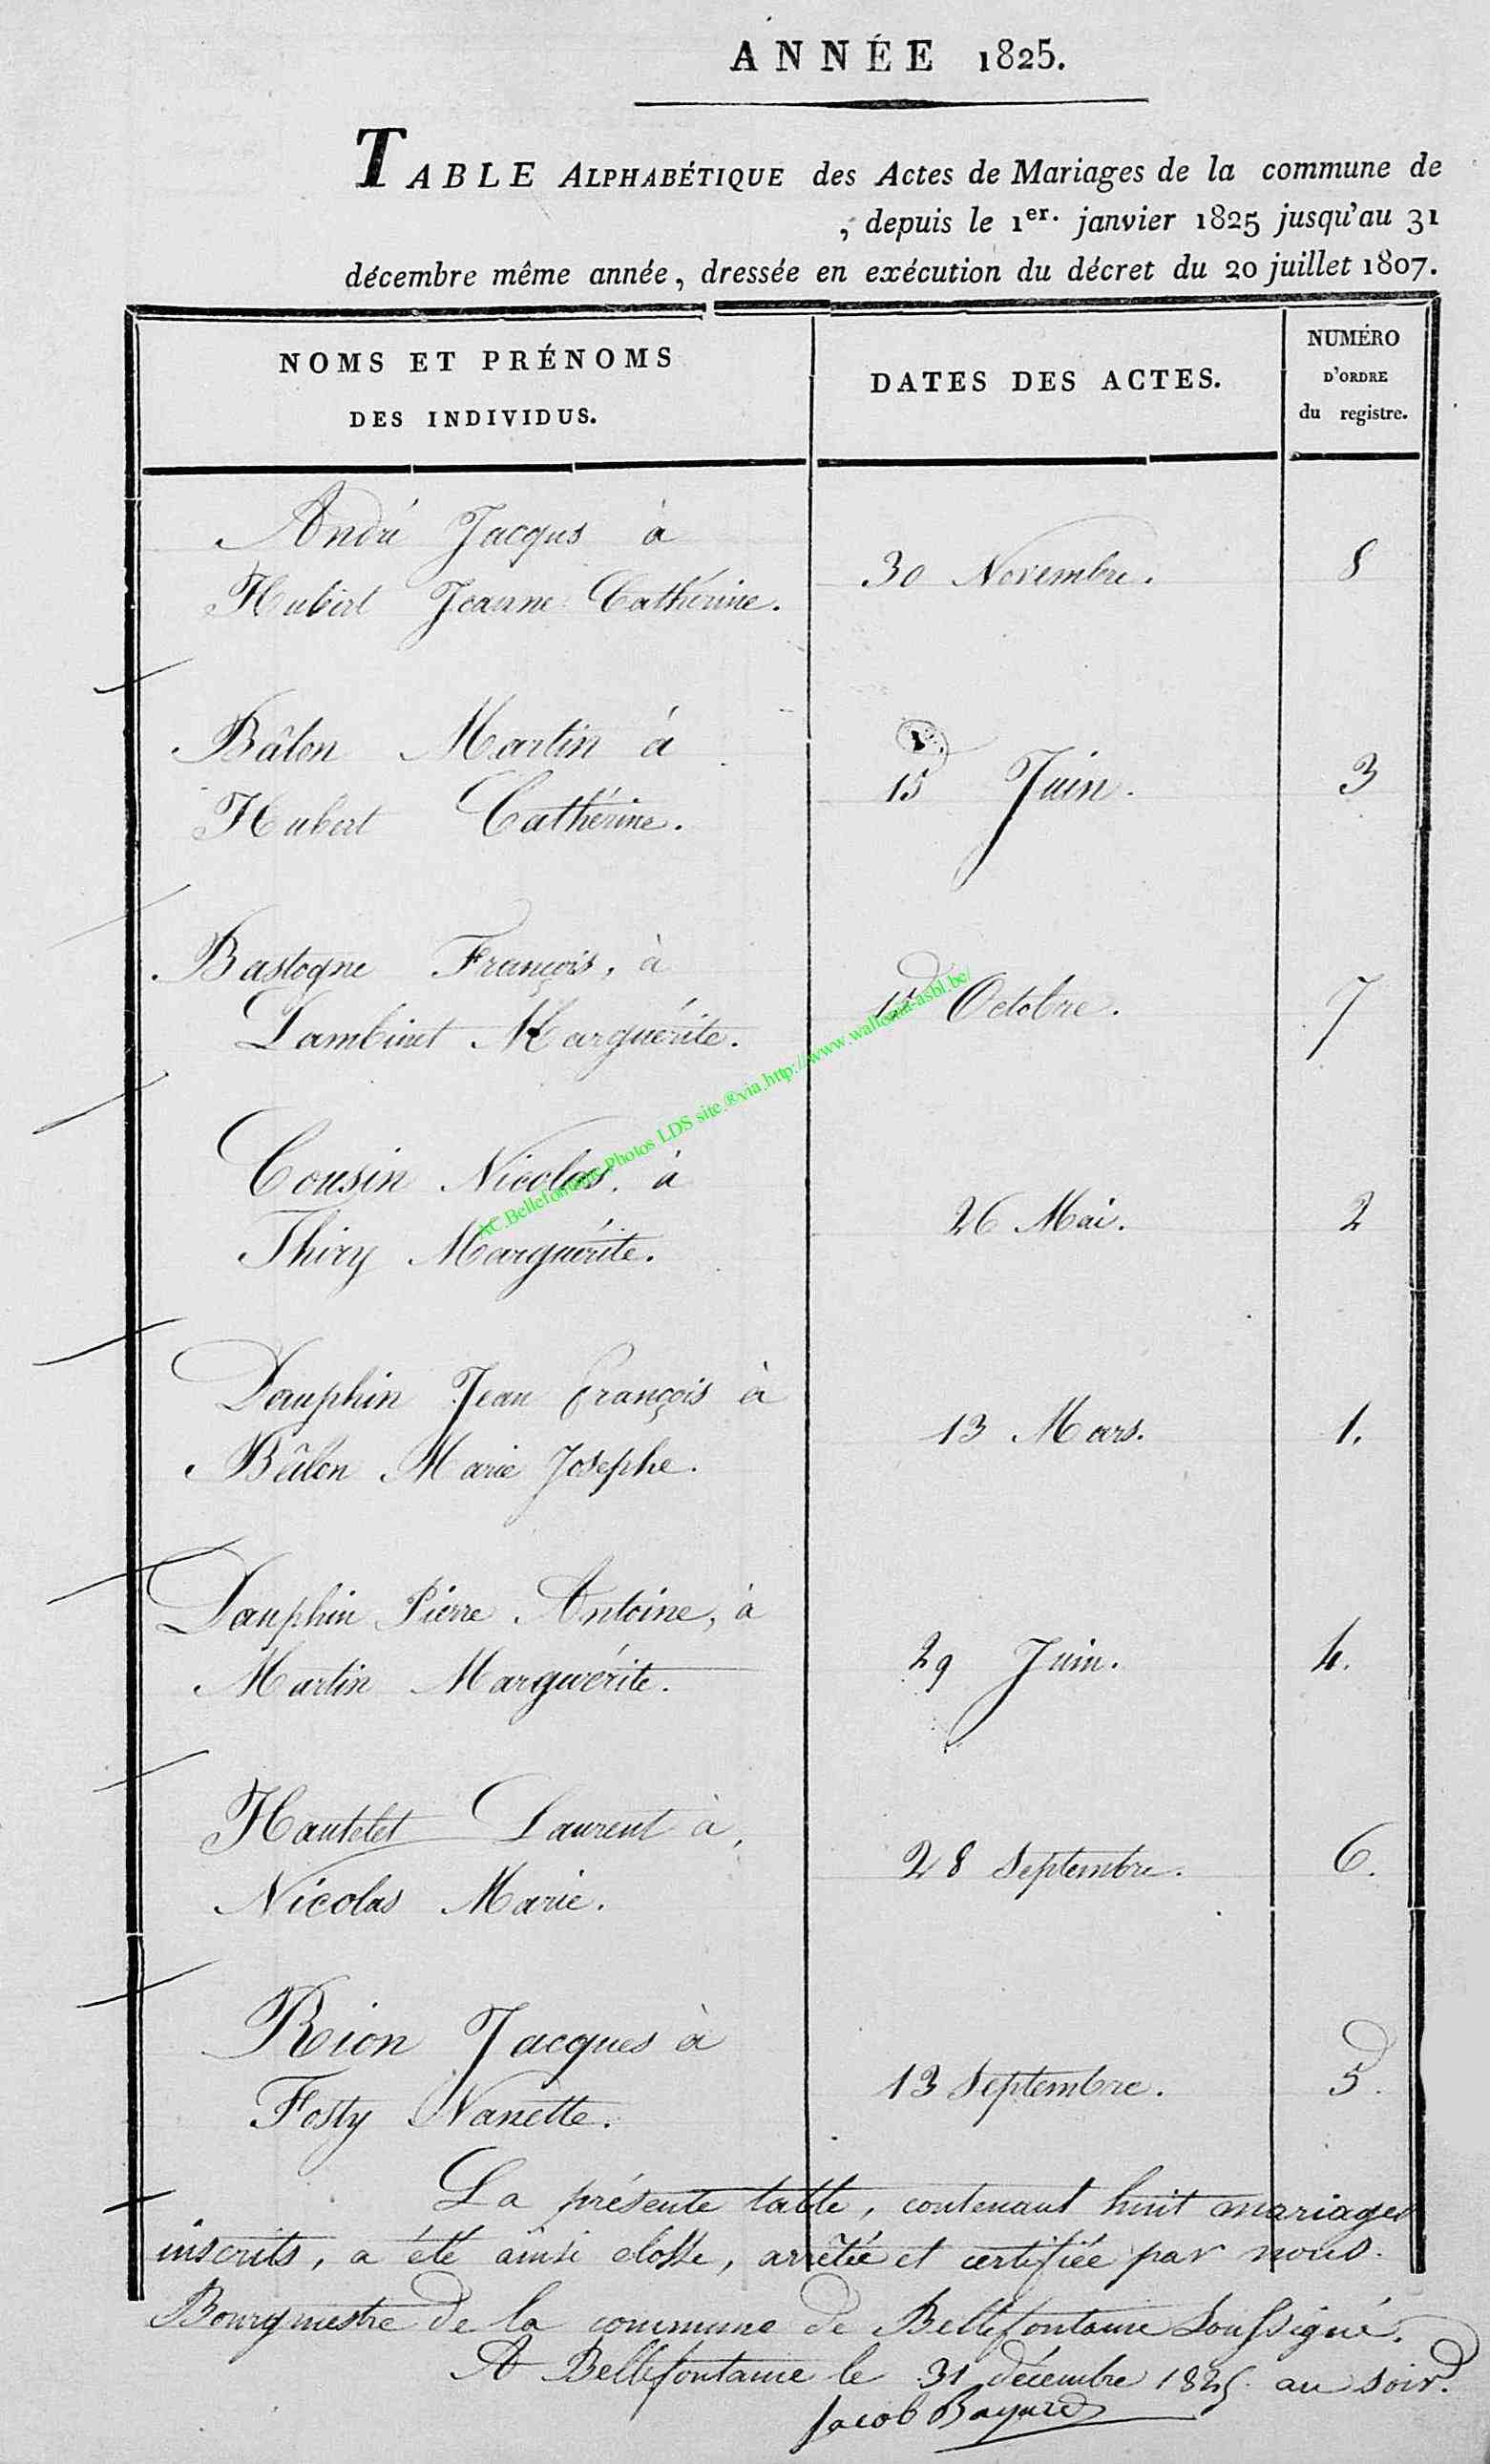 ANNÉE 1825.
TABLE ALPHABÉTIQUE des Actes de Mariages de la commune de
, depuis le 1er. janvier 1825 jusqu'au 31
décembre même année, dressée en exécution du décret du 20 juillet 1807.
NOMS ET PRÉNOMS
DES INDIVIDUS.
DATES DES ACTES.
NUMÉRO
D'ORDRE
du registre.
André Jacqus à
Hubert Jeanne Cathérine.
30 Novembre.
8
Bâlon Martin à
Hubert Cathérine.
15 Juin.
3
Bastogne François, à
Lambinet Marguérite.
15 Octobre.
7
Cousin Nicolas, à
Thiry Marguérite.
26 Mai.
2
Dauphin Jean François à
Bâlon Marie Josephe.
13 Mars.
1.
Dauphin Pierre Antoine, à
Martin Marguérite.
29 Juin.
4.
Hautelet Laurent à,
Nicolas Marie.
28 Septembre.
6.
Reion Jacques à
Fosty Nanette.
13 Septembre.
5.
La présente table, contenant huit mariages
inscrits, a été ainsi closse, arrêtée et certifiée par nous
Bourgmestre de la commune de Bellefontaine Soussigné.
A Bellefontaine le 31 décembre 1825 au soir.
Jacob Bayard
AC.Bellefontaine Photos LDS site.®via.http://www.wallonia-asbl.be/